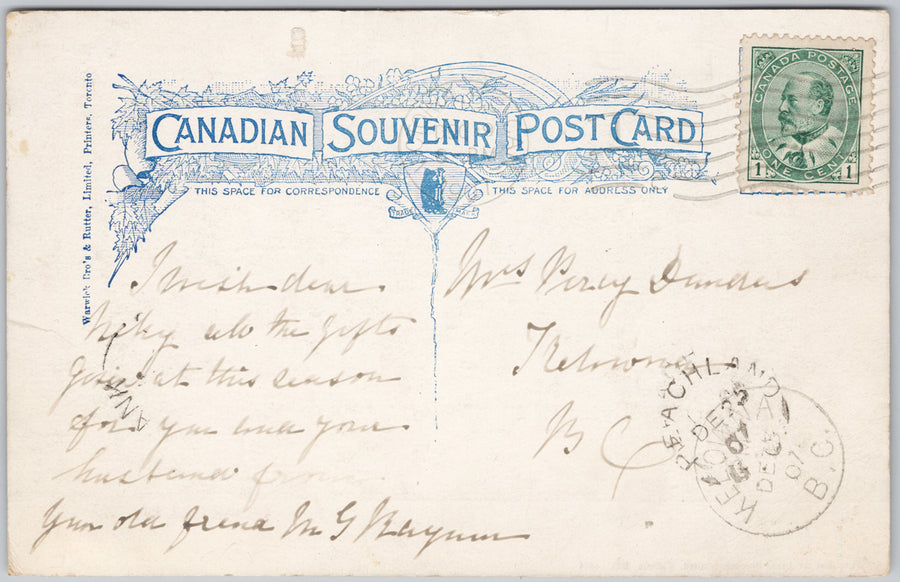 CANADIAN SOUVENIR POST CARD
THIS SPACE FOR CORRESPONDENCE
THIS SPACE FOR ADDRESS ONLY
TRADE MARK
Warwick Bro's & Rutter, Limited, Printers, Toronto
CANADA POSTAGE
ONE CENT
1 1
I wish dear
all the gifts
at this season
for you and your
husband from
Your old friend M G
Mrs Percy Dundas
Kelowna
B C
PEACHLAND
DE 25
07
KELOWNA
DE
07
B.C.